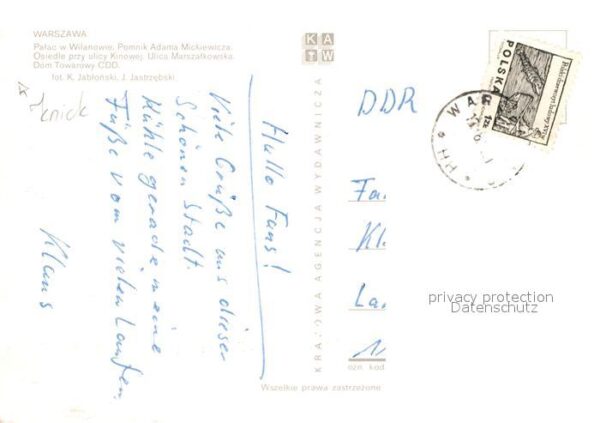 WARSZAWA
Pałac w Wilanowie. Pomnik Adama Mickiewicza.
Osiedle przy ulicy Kinowej. Ulica Marszałkowska.
Dom Towarowy CDD.
fot. K. Jabłoński, J. Jastrzębski
knick
Hallo Fans!
Viele Grüße aus dieser
Schönen Stadt.
Kühle gerade meine
Füße vom vielen Laufen.
Klaus
K A
T W
KRAJOWA AGENCJA WYDAWNICZA
Wszelkie prawa zastrzeżone
POLSKA
WAR
DDR
Fa.
Kl.
La.
1
ozn. kod.
privacy protection
Datenschutz